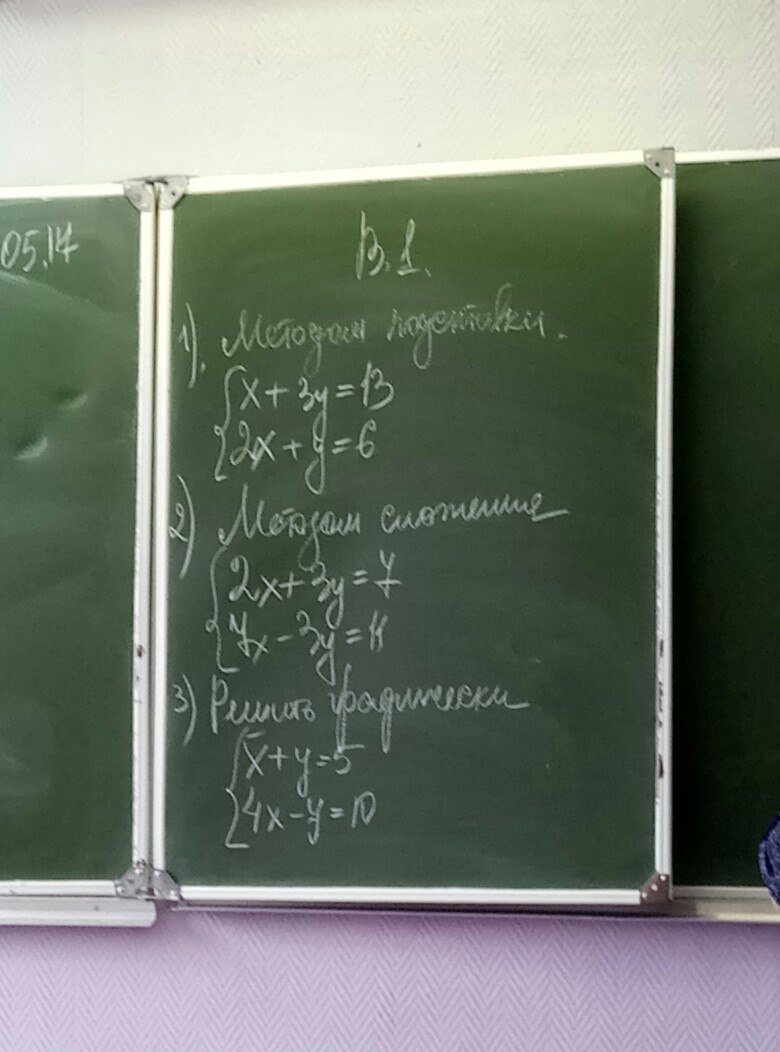 05.17
В.1.
1). Методом подстановки.
x+3y=13
2x+y=6
2) Методом сложения
2x+3y=7
7x-3y=11
3) Решить графически
x+y=5
4x-y=10